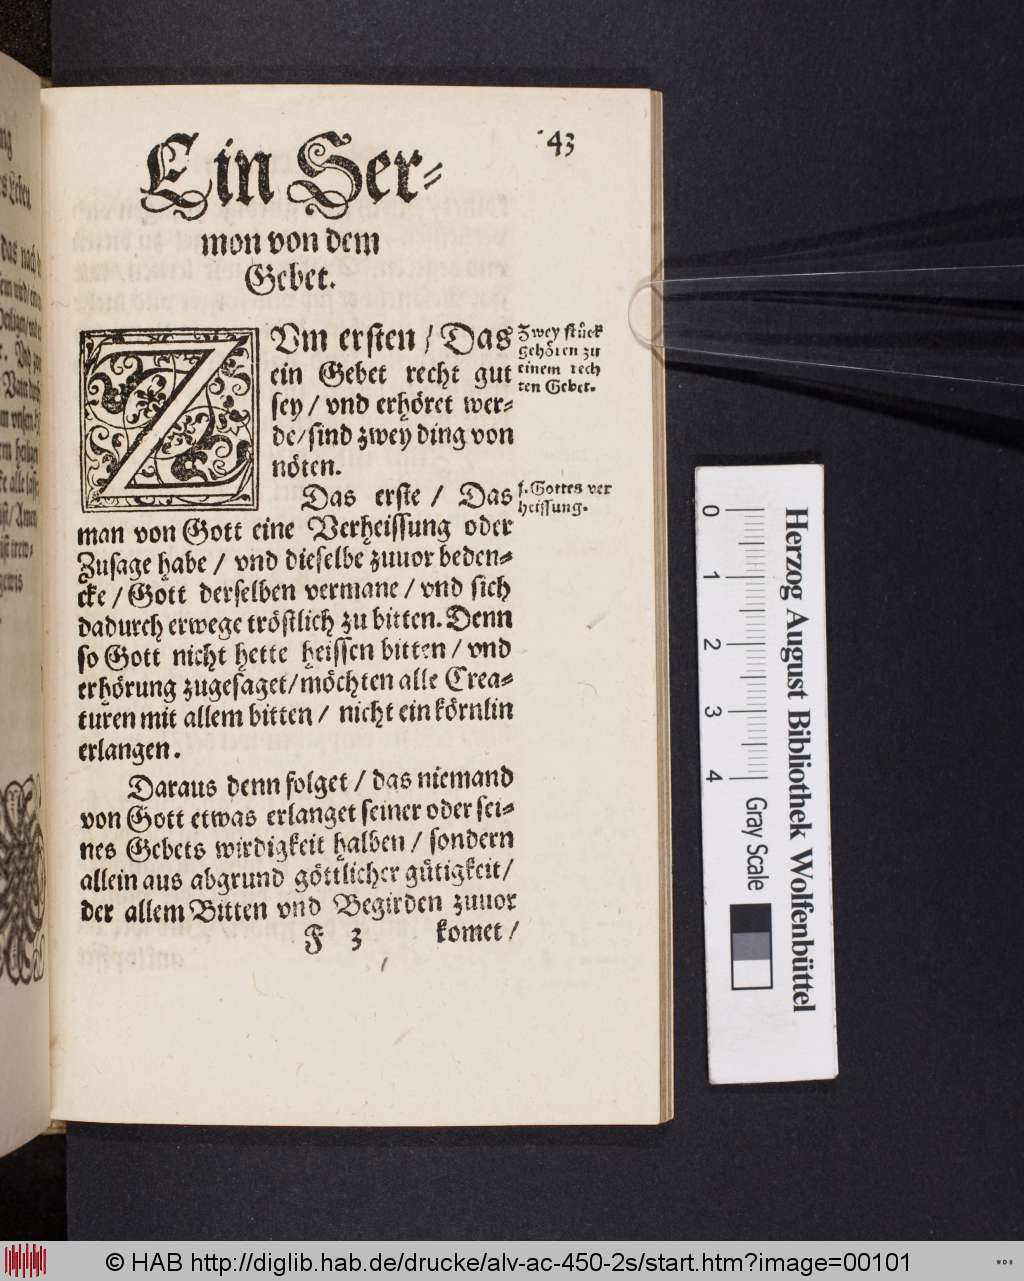 43
Ein Ser⸗
mon von dem
Gebet.
ZVm ersten / Das
ein Gebet recht gut
sey / vnd erhöret wer⸗
de / sind zwey ding von
nöten.
Zwey stück
gehören zu
einem rech
ten Gebet.
Das erste / Das
1. Gottes ver
heissung.
man von Gott eine Verheissung oder
Zusage habe / vnd dieselbe zuuor beden⸗
cke / Gott derselben vermane / vnd sich
dadurch erwege tröstlich zu bitten. Denn
so Gott nicht hette heissen bitten / vnd
erhörung zugesaget / möchten alle Crea⸗
turen mit allem bitten / nicht ein körnlin
erlangen.
Daraus denn folget / das niemand
von Gott etwas erlanget seiner oder sei⸗
nes Gebets wirdigkeit halben / sondern
allein aus abgrund göttlicher gütigkeit /
der allem Bitten vnd Begirden zuuor
F 3 komet /
das nach
Herzog August Bibliothek Wolfenbüttel
0 1 2 3 4 Gray Scale
© HAB http://diglib.hab.de/drucke/alv-ac-450-2s/start.htm?image=00101